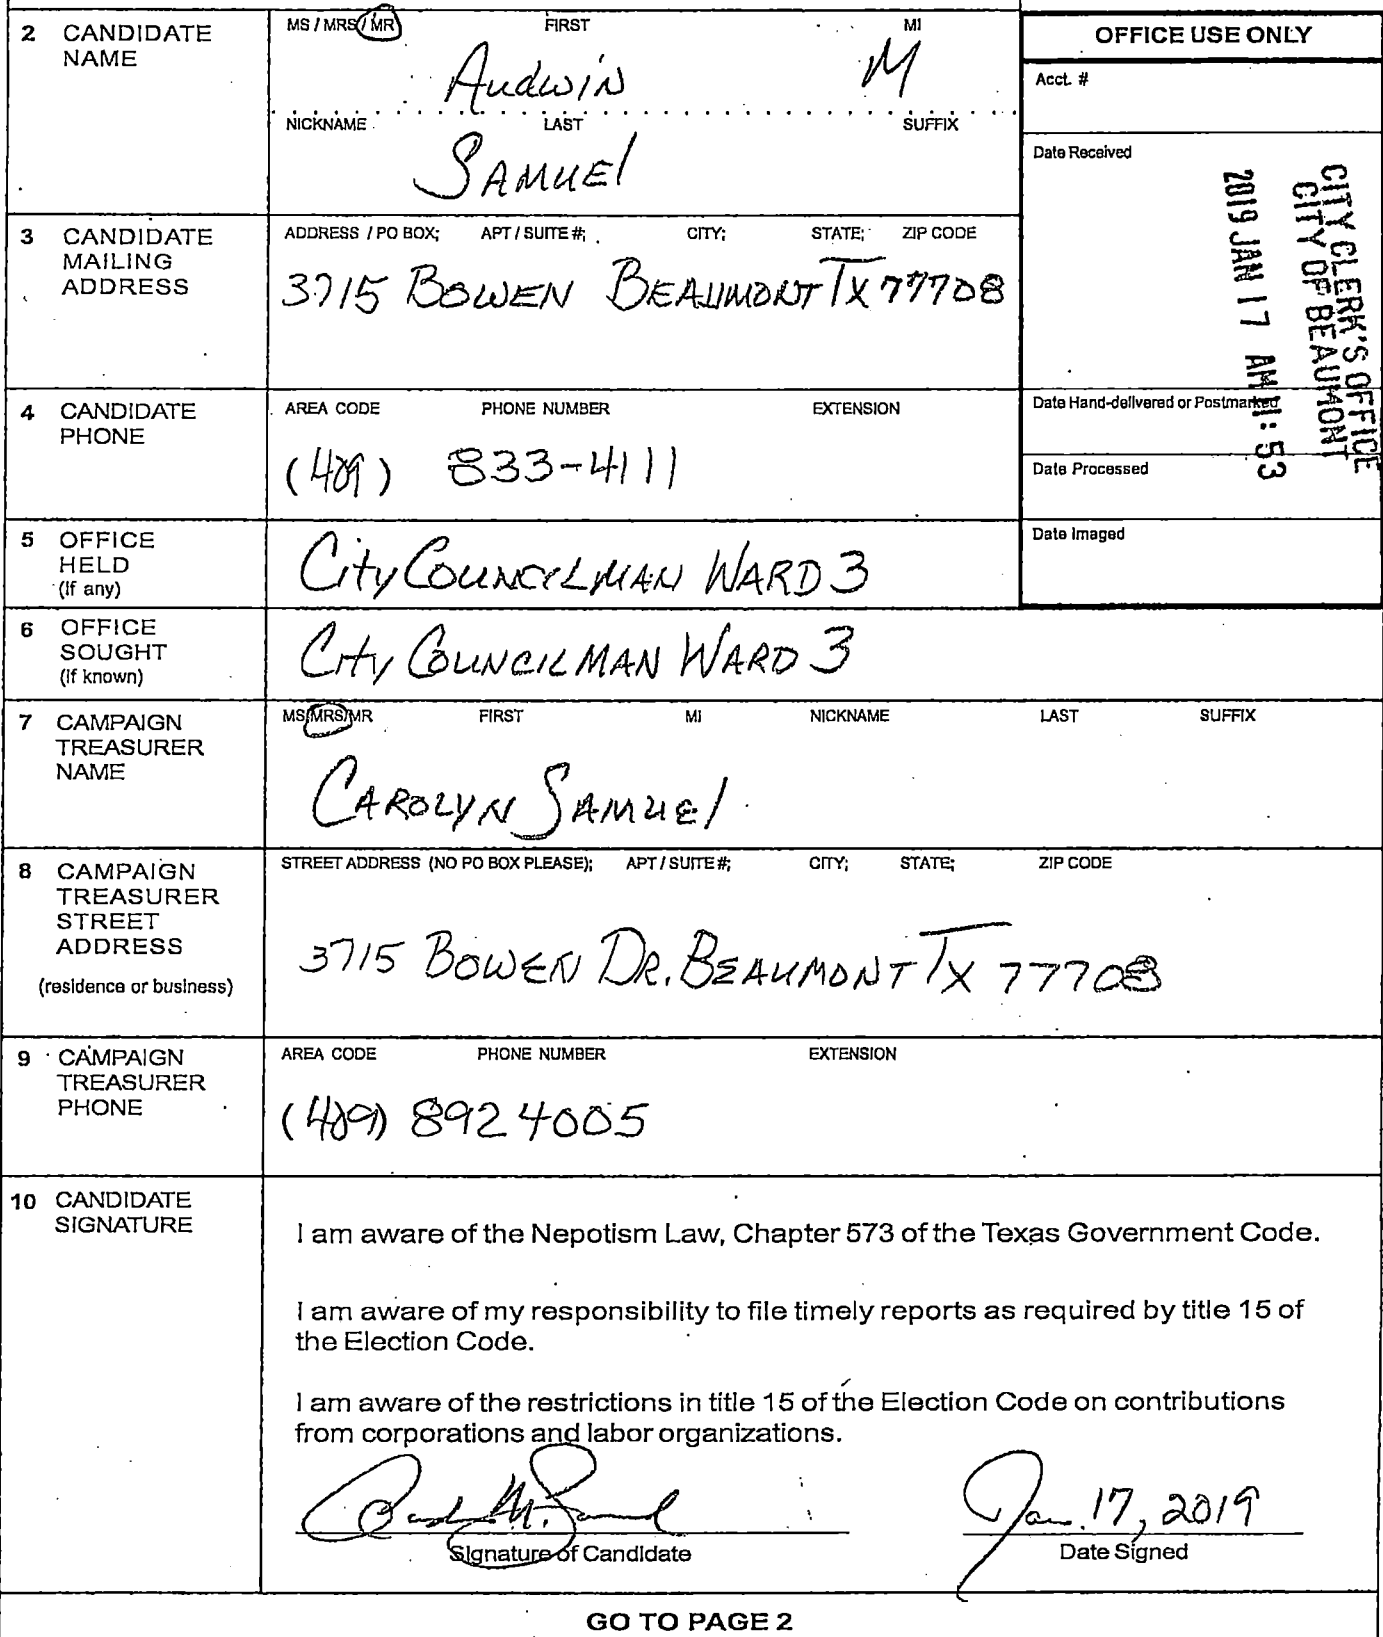 2 CANDIDATE NAME
MS / MRS / MR FIRST MI
Audwin M
NICKNAME LAST SUFFIX
SAMUEl
OFFICE USE ONLY
Acct. #
Date Received
CITY CLERK'S OFFICE
CITY OF BEAUMONT
2019 JAN 17 AM 11:53
Date Hand-delivered or Postmarked
Date Processed
Date Imaged
3 CANDIDATE MAILING ADDRESS
ADDRESS / PO BOX; APT / SUITE #; CITY; STATE; ZIP CODE
3715 BOWEN BEAUMONT TX 77708
4 CANDIDATE PHONE
AREA CODE PHONE NUMBER EXTENSION
(409) 833-4111
5 OFFICE HELD (if any)
City COUNCILMAN WARD 3
6 OFFICE SOUGHT (if known)
City COUNCILMAN WARD 3
7 CAMPAIGN TREASURER NAME
MS/MRS/MR FIRST MI NICKNAME LAST SUFFIX
CAROLYN SAMUEl
8 CAMPAIGN TREASURER STREET ADDRESS (residence or business)
STREET ADDRESS (NO PO BOX PLEASE); APT / SUITE #; CITY; STATE; ZIP CODE
3715 BOWEN DR. BEAUMONT TX 77708
9 CAMPAIGN TREASURER PHONE
AREA CODE PHONE NUMBER EXTENSION
(409) 892 4005
10 CANDIDATE SIGNATURE
I am aware of the Nepotism Law, Chapter 573 of the Texas Government Code.
I am aware of my responsibility to file timely reports as required by title 15 of
the Election Code.
I am aware of the restrictions in title 15 of the Election Code on contributions
from corporations and labor organizations.
Jan. 17, 2019
Signature of Candidate Date Signed
GO TO PAGE 2